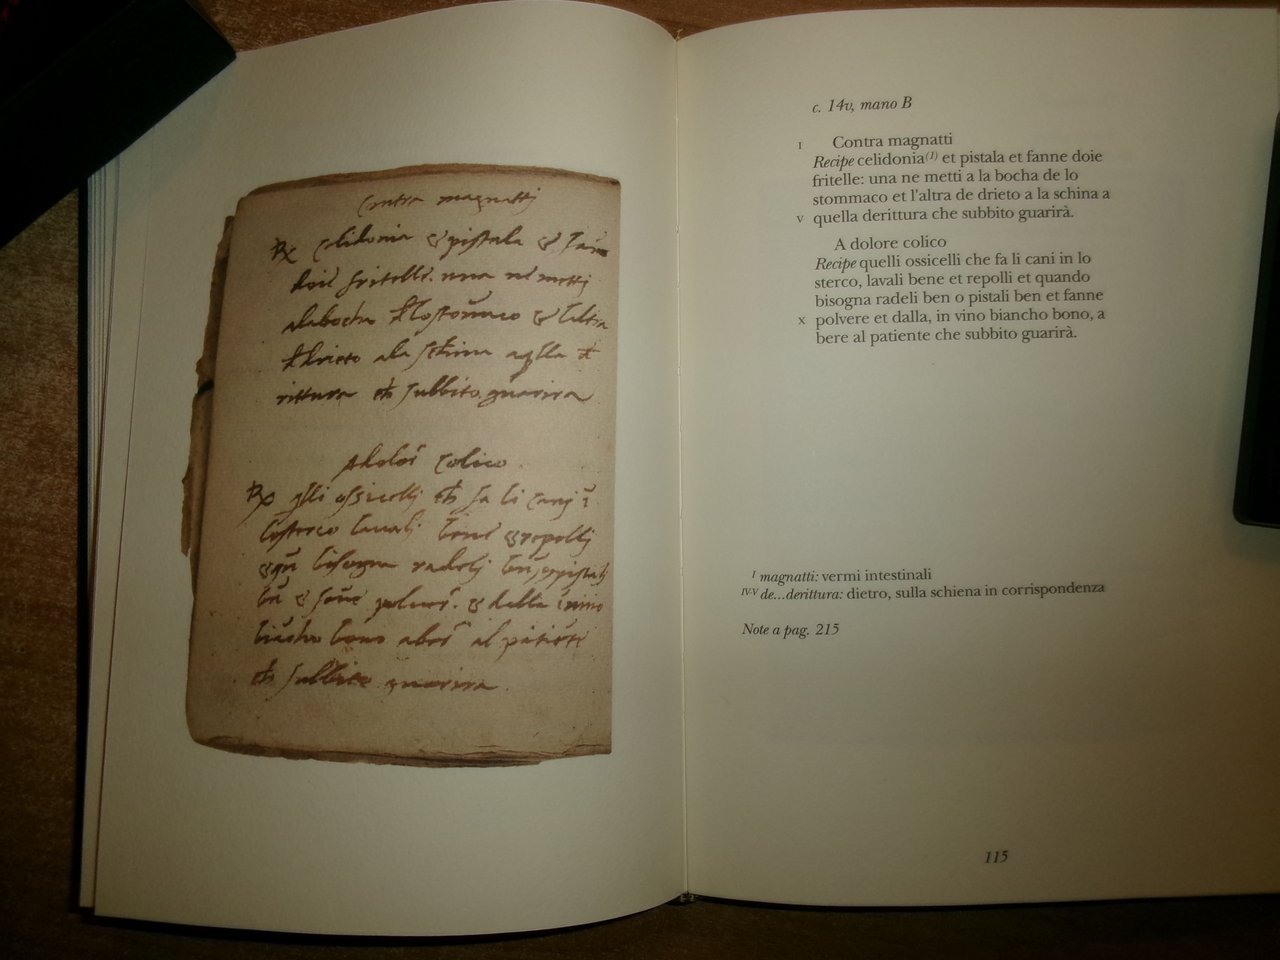 Contra magnattj
Rx celidonia & pistala & fane
doie fritelle. una ne metti
alabocha d lo stomaco & laltra
d drieto ala schina aqlla de
rittura ch subbito guarira
A dolor colico
Rx qlli ossicellj ch fa li canj i
lo sterco lavalj bene & repollj
& qn bisogna radelj ben o pistalj
ben & fane polver. & dalla i vino
biacho bono a ber al patiete
ch subbito guarira
c. 14v, mano B
I Contra magnatti
Recipe celidonia(1) et pistala et fanne doie
fritelle: una ne metti a la bocha de lo
stommaco et l'altra de drieto a la schina a
V quella derittura che subbito guarirà.
A dolore colico
Recipe quelli ossicelli che fa li cani in lo
sterco, lavali bene et repolli et quando
bisogna radeli ben o pistali ben et fanne
X polvere et dalla, in vino biancho bono, a
bere al patiente che subbito guarirà.
I magnatti: vermi intestinali
IV-V de...derittura: dietro, sulla schiena in corrispondenza
Note a pag. 215
115